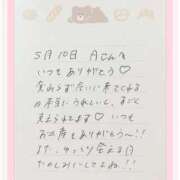 5月10日 Aさんへ
いつもありがとう♡
変わらず会いに来てくれる
の本当にうれしいし、すごく
支えられてます♡いつも
お土産もありがとう〜!!
また、ゆっくり会える日
たのしみにしてるね!!